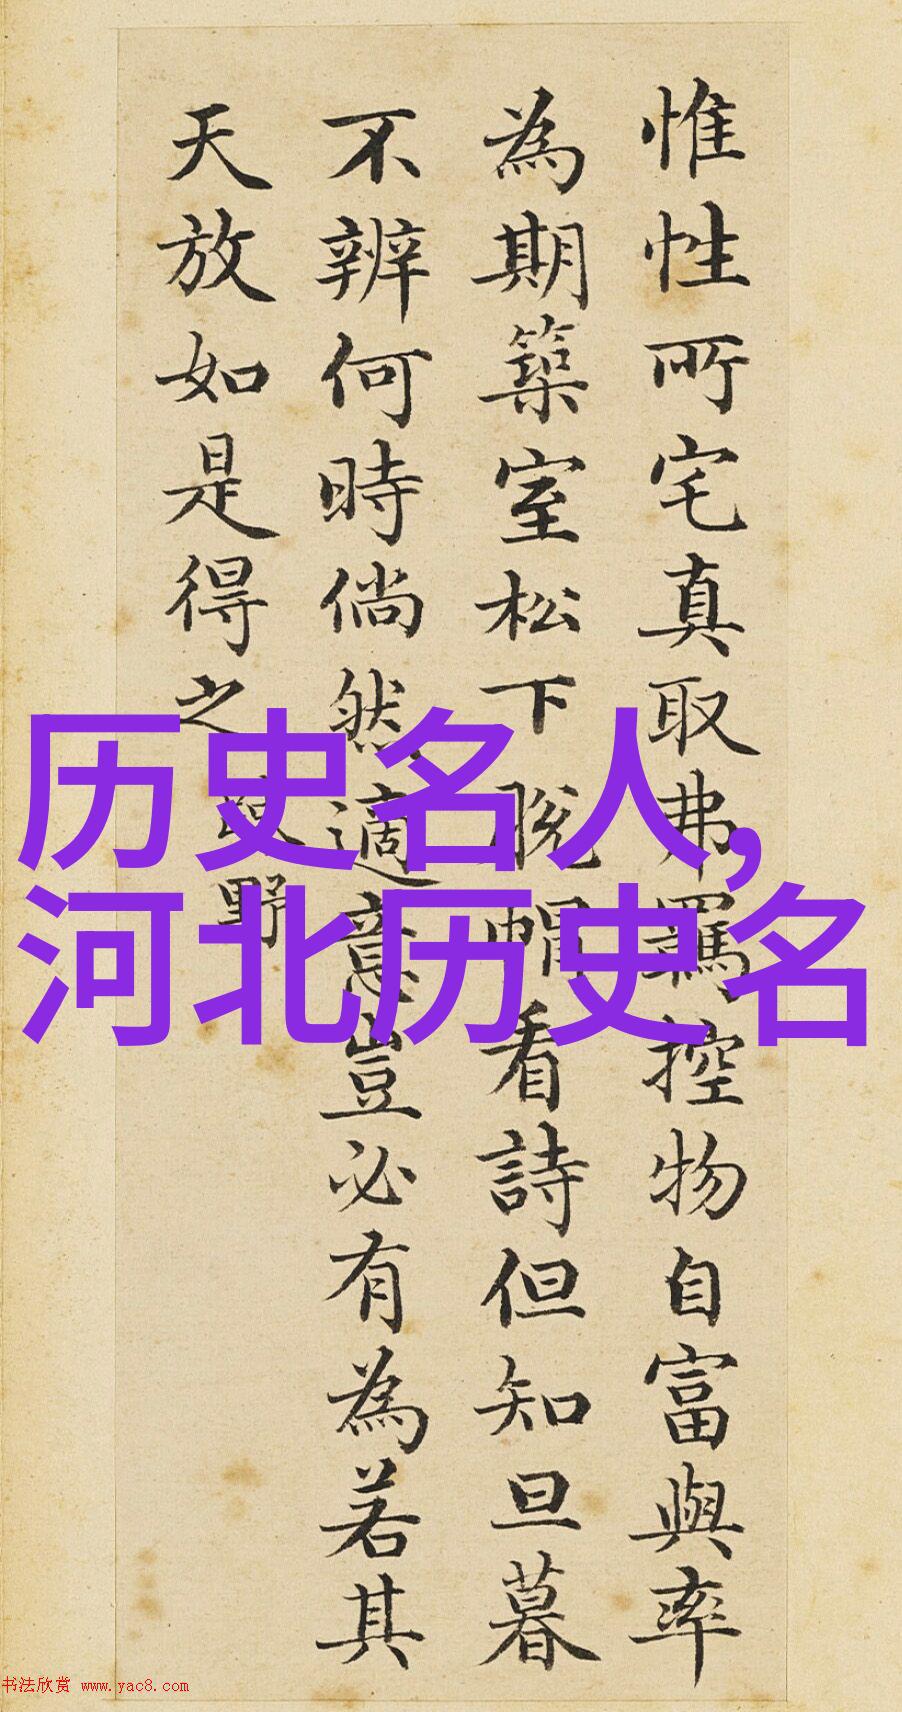 惟性所宅真取弗羈控物自富與率
為期築室松下脫帽看詩但知旦暮
不辨何時倘然適意豈必有為若其
天放如是得之
野
历史名人,
河北历史名
书法欣赏 www.yac8.com